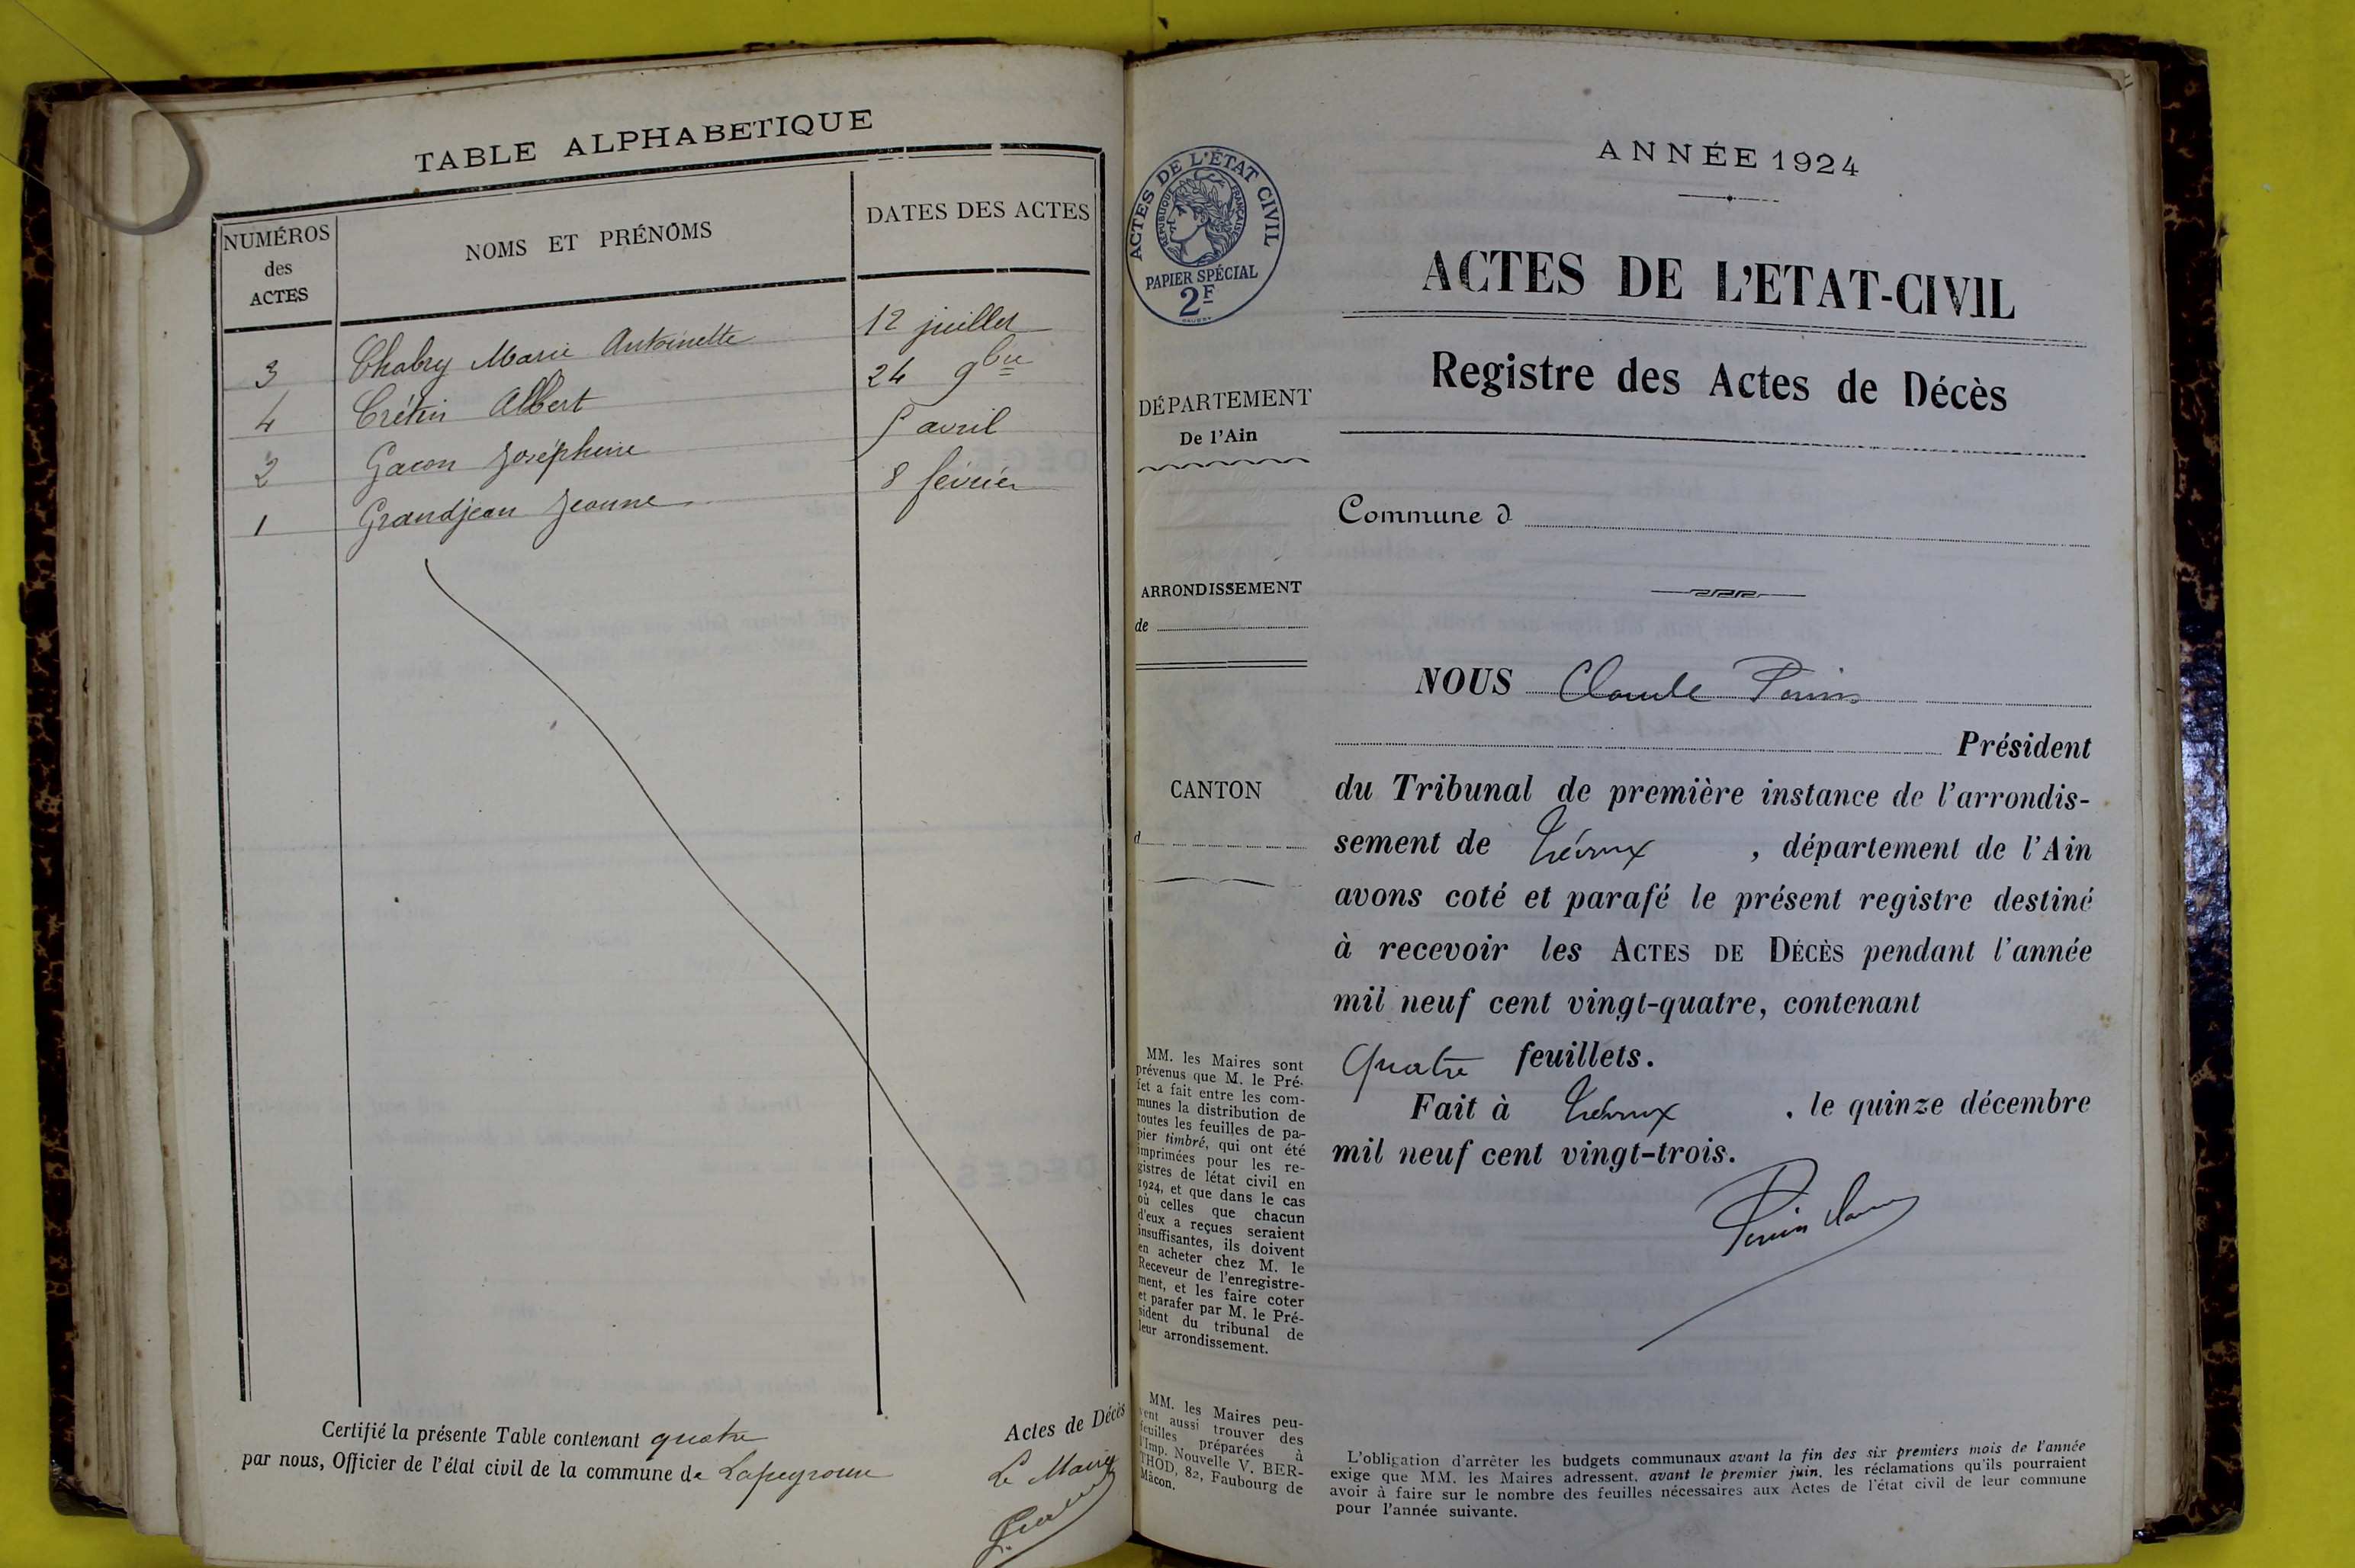 TABLE ALPHABETIQUE
NUMÉROS
des
ACTES
NOMS ET PRÉNOMS
DATES DES ACTES
3 Chabry Marie Antoinette 12 juillet
4 Crétin Albert 24 9bre
2 Gacon Joséphine 5 avril
1 Grandjean Jeanne 8 février
Certifié la présente Table contenant quatre Actes de Décès
par nous, Officier de l'état civil de la commune de Lapeyrouse
Le Maire
ACTES DE L'ÉTAT CIVIL
RÉPUBLIQUE FRANÇAISE
PAPIER SPÉCIAL
2F
DÉPARTEMENT
De l'Ain
ARRONDISSEMENT
de
CANTON
d
MM. les Maires sont
prévenus que M. le Pré-
fet a fait entre les com-
munes la distribution de
toutes les feuilles de pa-
pier timbré, qui ont été
imprimées pour les re-
gistres de létat civil en
1924, et que dans le cas
où celles que chacun
d'eux a reçues seraient
insuffisantes, ils doivent
en acheter chez M. le
Receveur de l'enregistre-
ment, et les faire coter
et parafer par M. le Pré-
sident du tribunal de
leur arrondissement.
MM. les Maires peu-
vent aussi trouver des
feuilles préparées à
l'Imp. Nouvelle V. BER-
THOD, 82, Faubourg de
Mâcon.
ANNÉE 1924
ACTES DE L'ETAT-CIVIL
Registre des Actes de Décès
Commune d
NOUS Claude Perrin
Président
du Tribunal de première instance de l'arrondis-
sement de Trévoux, département de l'Ain
avons coté et parafé le présent registre destiné
à recevoir les ACTES DE DÉCÈS pendant l'année
mil neuf cent vingt-quatre, contenant
Quatre feuillets.
Fait à Trévoux, le quinze décembre
mil neuf cent vingt-trois.
L'obligation d'arrêter les budgets communaux avant la fin des six premiers mois de l'année
exige que MM. les Maires adressent, avant le premier juin, les réclamations qu'ils pourraient
avoir à faire sur le nombre des feuilles nécessaires aux Actes de l'état civil de leur commune
pour l'année suivante.